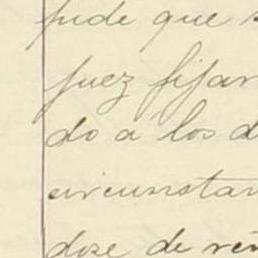 pide que s
juez fijar
do a los d
circunstan
dose de ren